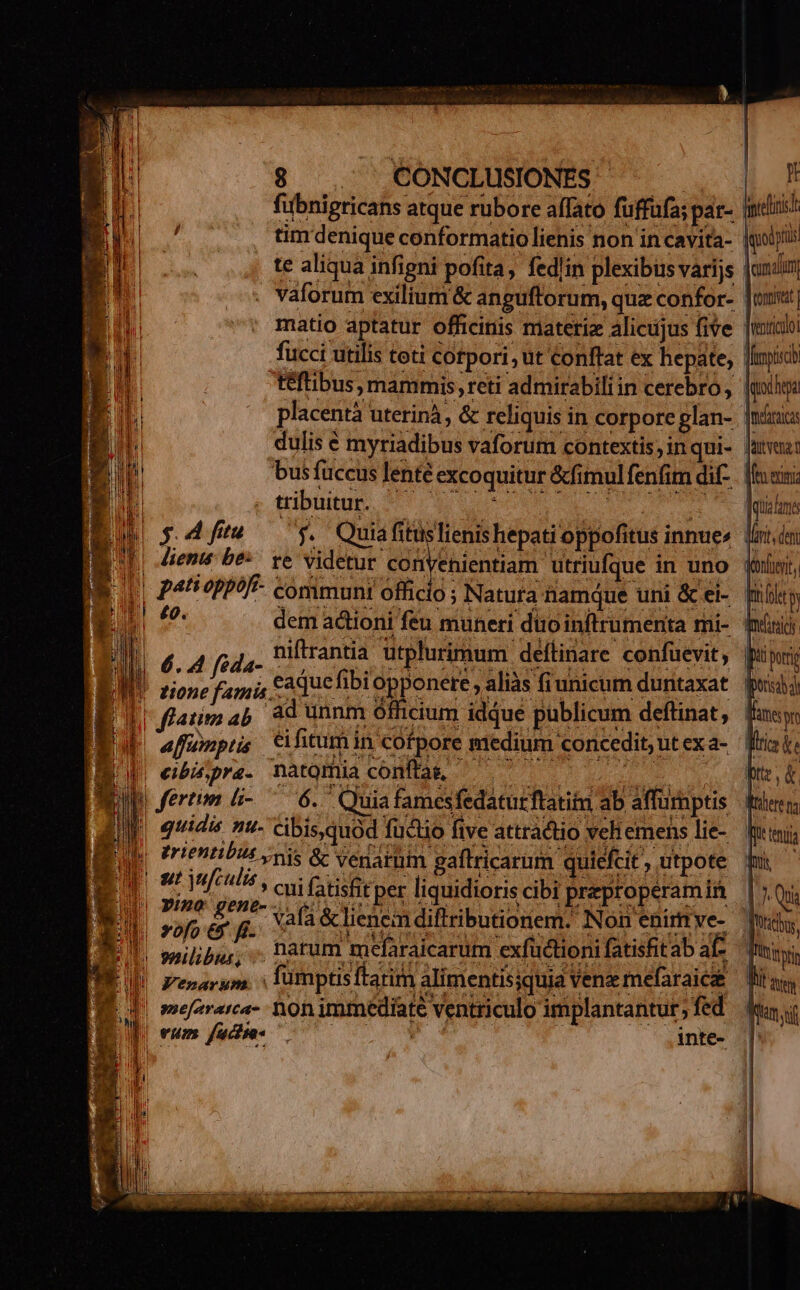 8 CONCLUSIONES
ſubnigricans atque rubore aſſato ſuffuſa; par-
tim denique conformatio lienis non in cavita-
te aliqua inſigni poſita, ſed in plexibus varijs
vaſorum exilium & anguſtorum, quæ confor-
matio aptatur officinis materiæ alicujus ſive
ſucci utilis toti corpori, ut conſtat ex hepate,
teſtibus, mammis, reti admirabili in cerebro,
placentâ uterinâ, & reliquis in corpore glan-
dulis è myriadibus vaſorum contextis, in qui-
bus ſuccus lentè excoquitur & ſimul ſenſim diſ-
tribuitur.
5. A ſitu
lienis he-
pati oppoſi-
to.
5. Quia ſitus lienis hepati oppoſitus innue-
re videtur convenientiam utriuſque in uno
communi officio; Natura namque uni & ei-
dem actioni ſeu muneri duo inſtrumenta mi-
niſtrantia utplurimum deſtinare conſuevit,
eaque ſibi opponere, aliàs ſi unicum duntaxat
ad unnm officium idque publicum deſtinat,
ei ſitum in corpore medium concedit, ut ex a-
natomia conſtat.
6. A ſeda-
tione famis
ſtatim ab
aſſumptis
cibis, præ-
ſertim li-
quidis nu-
trientibus
ut juſculis,
vino gene-
roſo & ſi-
milibus,
Venarum
meſaraica-
rum ſuctio-
6. Quia fames ſedatur ſtatim ab aſſumptis
cibis, quod ſuctio ſive attractio vehemens lie-
nis & venarum gaſtricarum quieſcit, utpote
cui ſatisfit per liquidioris cibi præproperam in
vaſa & lienem diſtributionem. Non enim ve-
narum meſaraicarum exſuctioni ſatisfit ab aſ-
ſumptis ſtatim alimentis; quia venæ meſaraicæ
non immediatè ventriculo implantantur, ſed
inte-